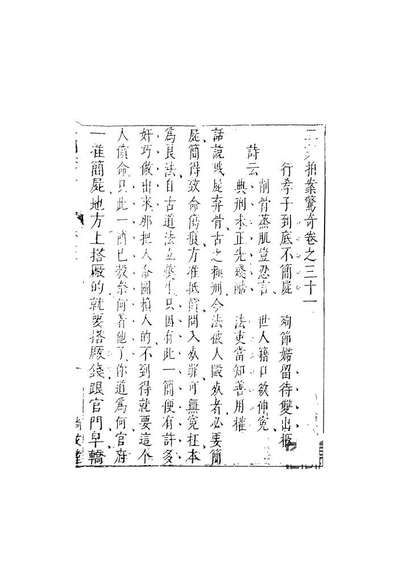 二刻拍案驚奇卷之三十一
行孝子到底不簡屍　殉節婦留待雙出柩
詩云
削骨蒸肌豈忍言　世人藉口欲伸冤
典刑未正先殘酷　法吏當知善用權
話說戮屍棄骨古之極刑今法被人毆死者必要簡
屍簡得致命傷痕方准抵償問入死罪可無冤枉本
為良法自古道法立弊生只因有此一簡便有許多
奸巧做出來那把人命圖賴人的不到得就要這个
人償命只此一簡已彀奈何著他了你道為何官府
一准簡屍地方上搭廠的就要搭廠錢跟官門皂轎